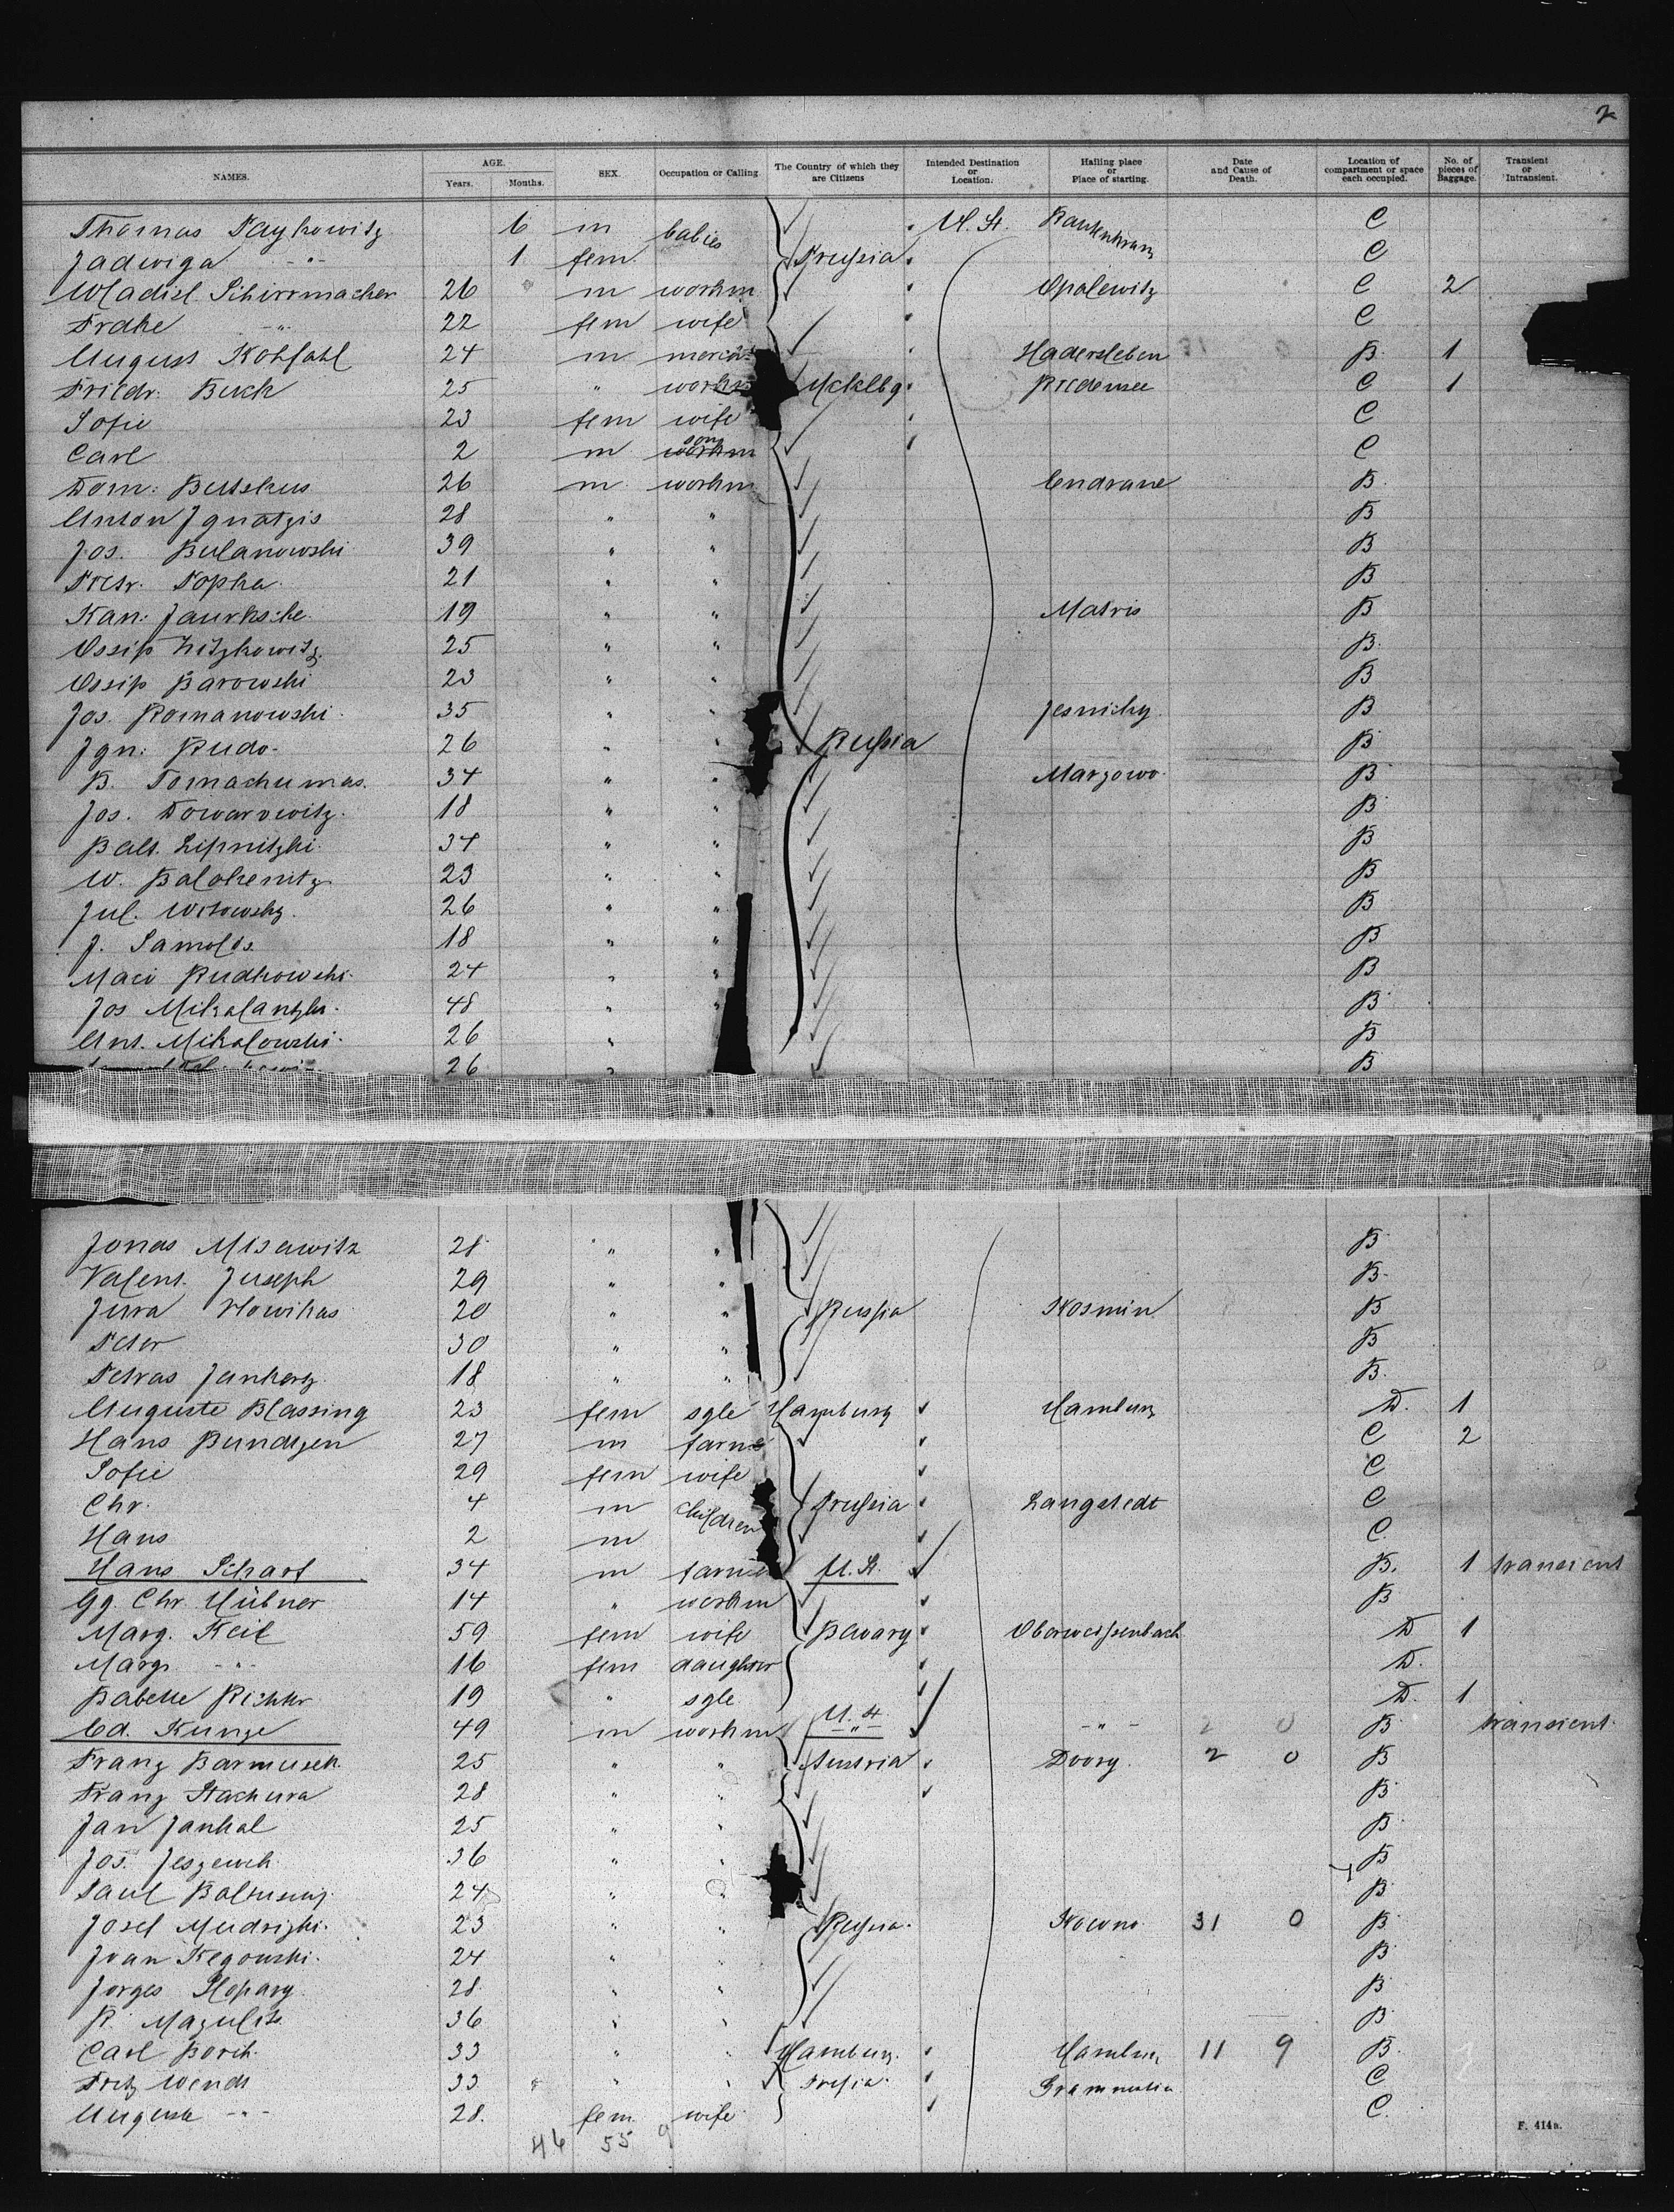 2
NAMES. AGE. Years. Months. SEX. Occupation or Calling. The Country of which they are Citizens Intended Destination or Location. Hailing place or Place of starting. Date and Cause of Death. Location of compartment or space each occupied. No. of pieces of Baggage. Transient or Intransient.
Thomas Paykowitz 6 m babies U. St. C
Jadwiga -"- 1 fem. Prussia C
Wladisl. Schirrmacher 26 m workm Opalewitz C 2
Frdke -"- 22 fem wife C
August Kohfahl 24 m merch Hadersleben B 1
Friedr. Buck 25 " workm Mcklbg. C 1
Sofie 23 fem wife C
Carl 2 m son C
Dom: Butskus 26 m workm Cendrane B
Anton Ignatzis 28 " " B
Jos. Bulanowski 39 " " B
Petr. Popka 21 " " B
Kan: Jaurksche 19 " " Matris B
Ossip 25 " " B.
Ossip Barowski 23 " " B
Jos. Romanowski 35 " " Jesnicky B
Ign: Rudo 26 " " Russia B
B. Tomachumas. 34 " " Margowo B
Jos. Dowarowitz 18 " " B
Balt. Lipnitzki 34 " " B
W. 23 " " B
Jul. Witowsky 26 " " B
J. Samolis 18 " " B
Maci Rudkowski 24 " " B
Jos 48 " " B
Ant. Mikalowski 26 " B
26 " B
Jonas Misawitz 28 " " B
Valent. Juseph 29 " " B.
Jurra Nowikas 20 " " Russia Kosmin B
Peter 30 " " B
Petras 18 " " B.
Auguste Blassing 23 fem sgle Hamburg Hamburg D. 1
Hans Bundtzen 27 m farm C 2
Sofie 29 fem wife C
Chr. 4 m children Prussia Langstedt C
Hans 2 m C.
Hans Scharf 34 m farmer U. St. B. 1 transient
Gg. Chr. Hübner 14 " workm B
Marg. Keil 59 fem wife Bavary Oberweissenbach D 1
Margr. -"- 16 fem daughter D.
Babette Richter 19 " sgle D. 1
Ed. Kunze 49 m workm U. St -"- -"- 2 0 B transient
Franz Barmusek 25 " " Austria 2 0 B
Franz Stachura 28 " " B
Jan Jankal 25 " " B
Jos. Jeszewck 36 " " B
Paul 24 " " B
Josel Mudrizki 23 " " Russia Kowno 31 0 B
Ivan Kegowski 24 " " B
Jorges 28 " " B
R. 36 " " B
Carl Borch 33 " " Hamburg Hamburg 11 9 B
Fritz Wendt 33 " " Prussia C
Auguste -"- 28. fem. wife C.
46 55 9
F. 414a.